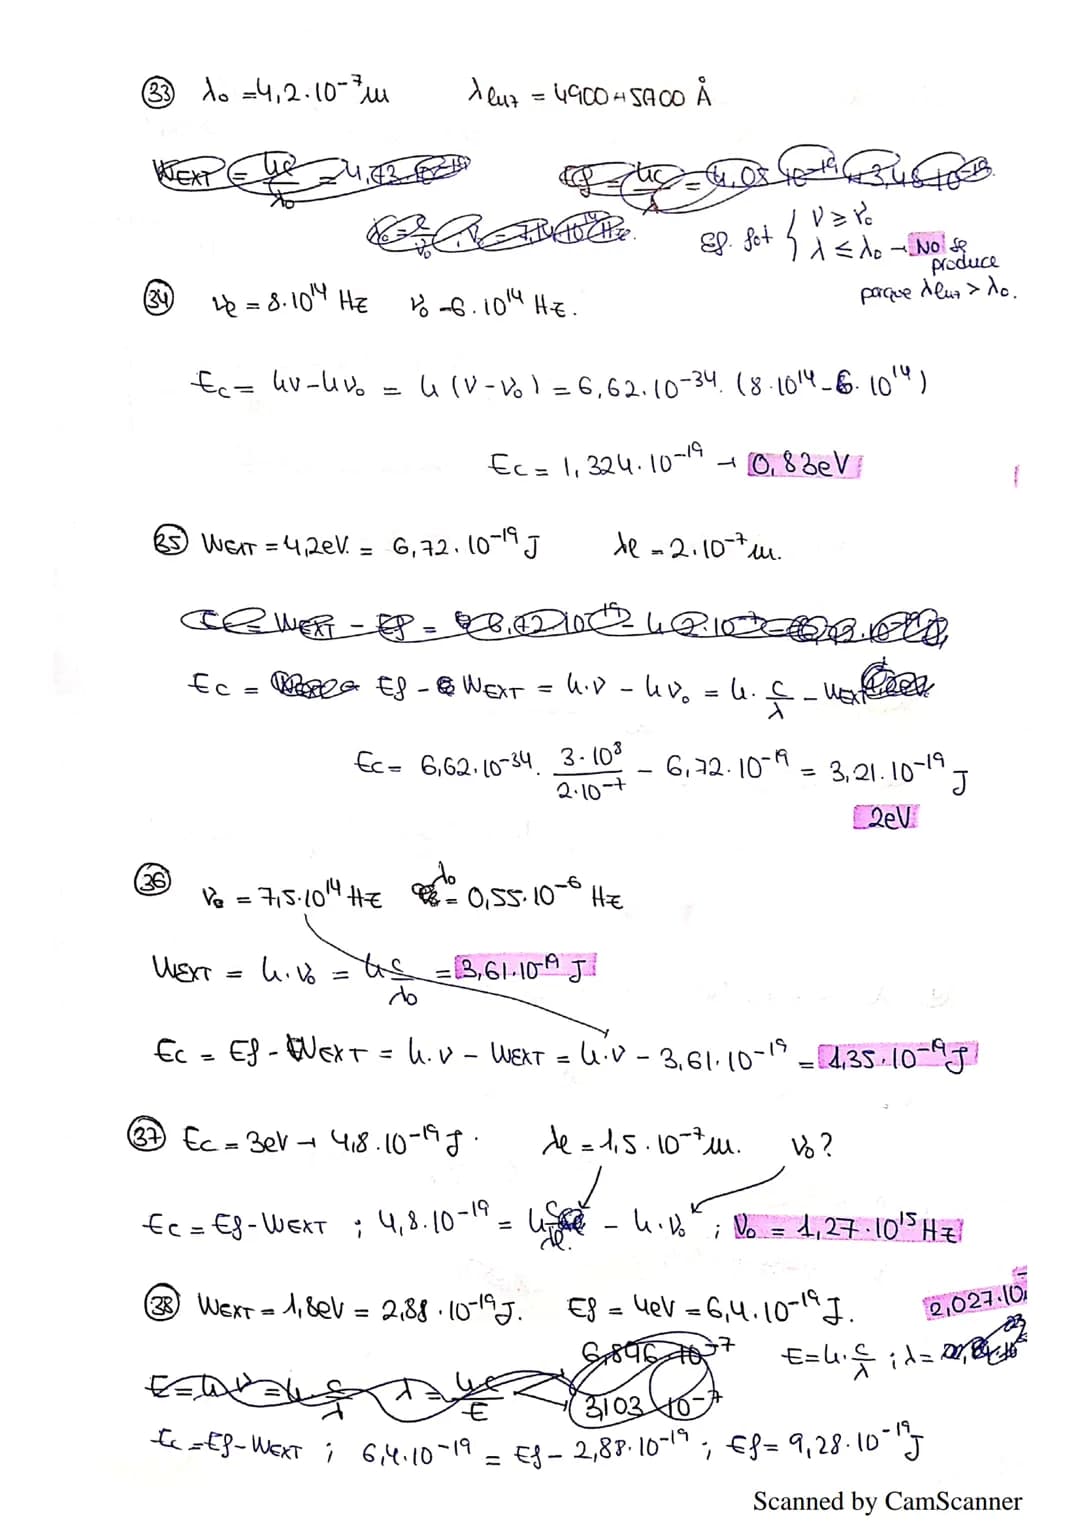 33 λ₀ = 4,2·10⁻⁷ m λluz = 4900 → 5900 Å
WEXT = hc/λ₀ = 4,73·10⁻¹⁹ Ef = hc/λ = 4,05 10⁻¹⁹ 3,48 10⁻¹⁹
Ef. fot { ν ≥ ν₀
λ ≤ λ₀ → No se
produce
porque λluz > λ₀.
34 νe = 8·10¹⁴ Hz ν₀ = 6·10¹⁴ Hz.
Ec = hν - hν₀ = h (ν - ν₀) = 6,62·10⁻³⁴. (8·10¹⁴ - 6·10¹⁴)
Ec = 1,324·10⁻¹⁹ → 0,83eV
35 WEXT = 4,2eV. = 6,72·10⁻¹⁹ J λe = 2·10⁻⁷ m.
Ec = Ef - WEXT = h·ν - hν₀ = h· c/λ - WEXT
Ec = 6,62·10⁻³⁴. 3·10⁸/2·10⁻⁷ - 6,72·10⁻¹⁹ = 3,21·10⁻¹⁹ J
2eV
36 ν₀ = 7,5·10¹⁴ Hz λ₀ = 0,55·10⁻⁶ Hz
WEXT = h·ν₀ = h c/λ₀ = 3,61·10⁻¹⁹ J
Ec = Ef - WEXT = h·ν - WEXT = h·ν - 3,61·10⁻¹⁹ = 1,35·10⁻¹⁹ J
37 Ec = 3eV → 4,8·10⁻¹⁹ J. λe = 1,5·10⁻⁷ m. ν₀?
Ec = Ef - WEXT ; 4,8·10⁻¹⁹ = h c/λe. - h·ν₀ ; ν₀ = 1,27·10¹⁵ Hz
38 WEXT = 1,8eV = 2,88·10⁻¹⁹ J. Ef = 4eV = 6,4·10⁻¹⁹ J. 2,027·10⁻
6,896 10⁻⁷ E = h· c/λ ; λ =
E = hν = h c/λ λ = hc/E 3,103 10⁻⁷
Ec = Ef - WEXT ; 6,4·10⁻¹⁹ = Ef - 2,88·10⁻¹⁹ ; Ef = 9,28·10⁻¹⁹ J
Scanned by CamScanner